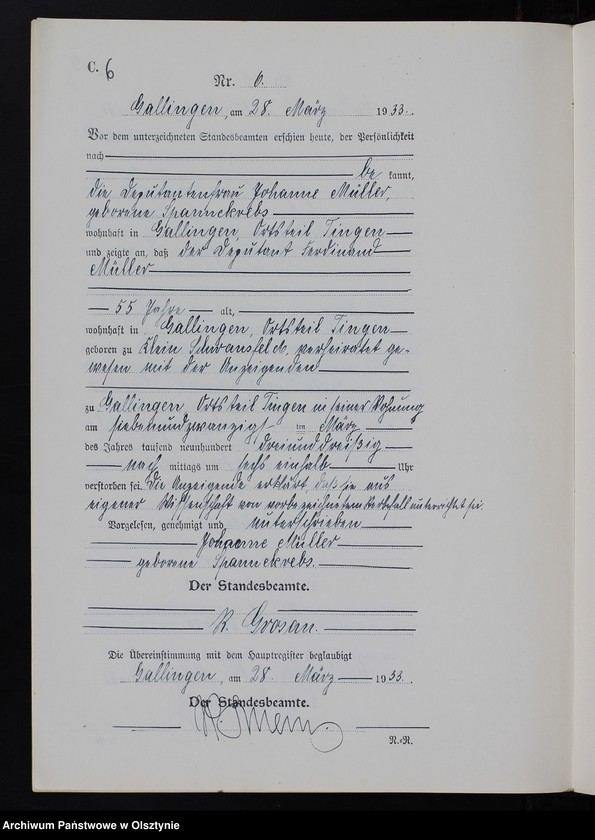 C. 6
Nr. 6.
Gallingen, am 28. März 1933.
Vor dem unterzeichneten Standesbeamten erschien heute, der Persönlichkeit
nach
be kannt,
die Deputantenfrau Johanne Müller,
geborene Spannekrebs
wohnhaft in Gallingen Ortsteil Tingen
und zeigte an, daß der Deputant Ferdinand
Müller
55 Jahre alt,
wohnhaft in Gallingen, Ortsteil Tingen
geboren zu Klein Schwansfeld, verheiratet ge-
wesen mit der Anzeigenden
zu Gallingen Ortsteil Tingen in seiner Wohnung
am siebenundzwanzigs ten März
des Jahres tausend neunhundert dreiunddreißig
nach mittags um sechs einhalb Uhr
verstorben sei. Die Anzeigende erklärt, daß sie aus
eigener Wissenschaft von vorbezeichnetem Sterbefall unterrichtet sei.
Vorgelesen, genehmigt und unterschrieben
Johanne Müller
geborene Spannekrebs.
Der Standesbeamte.
R. Grosan.
Die Übereinstimmung mit dem Hauptregister beglaubigt
Gallingen, am 28. März 1933.
Der Standesbeamte.
N.=R.
Archiwum Państwowe w Olsztynie